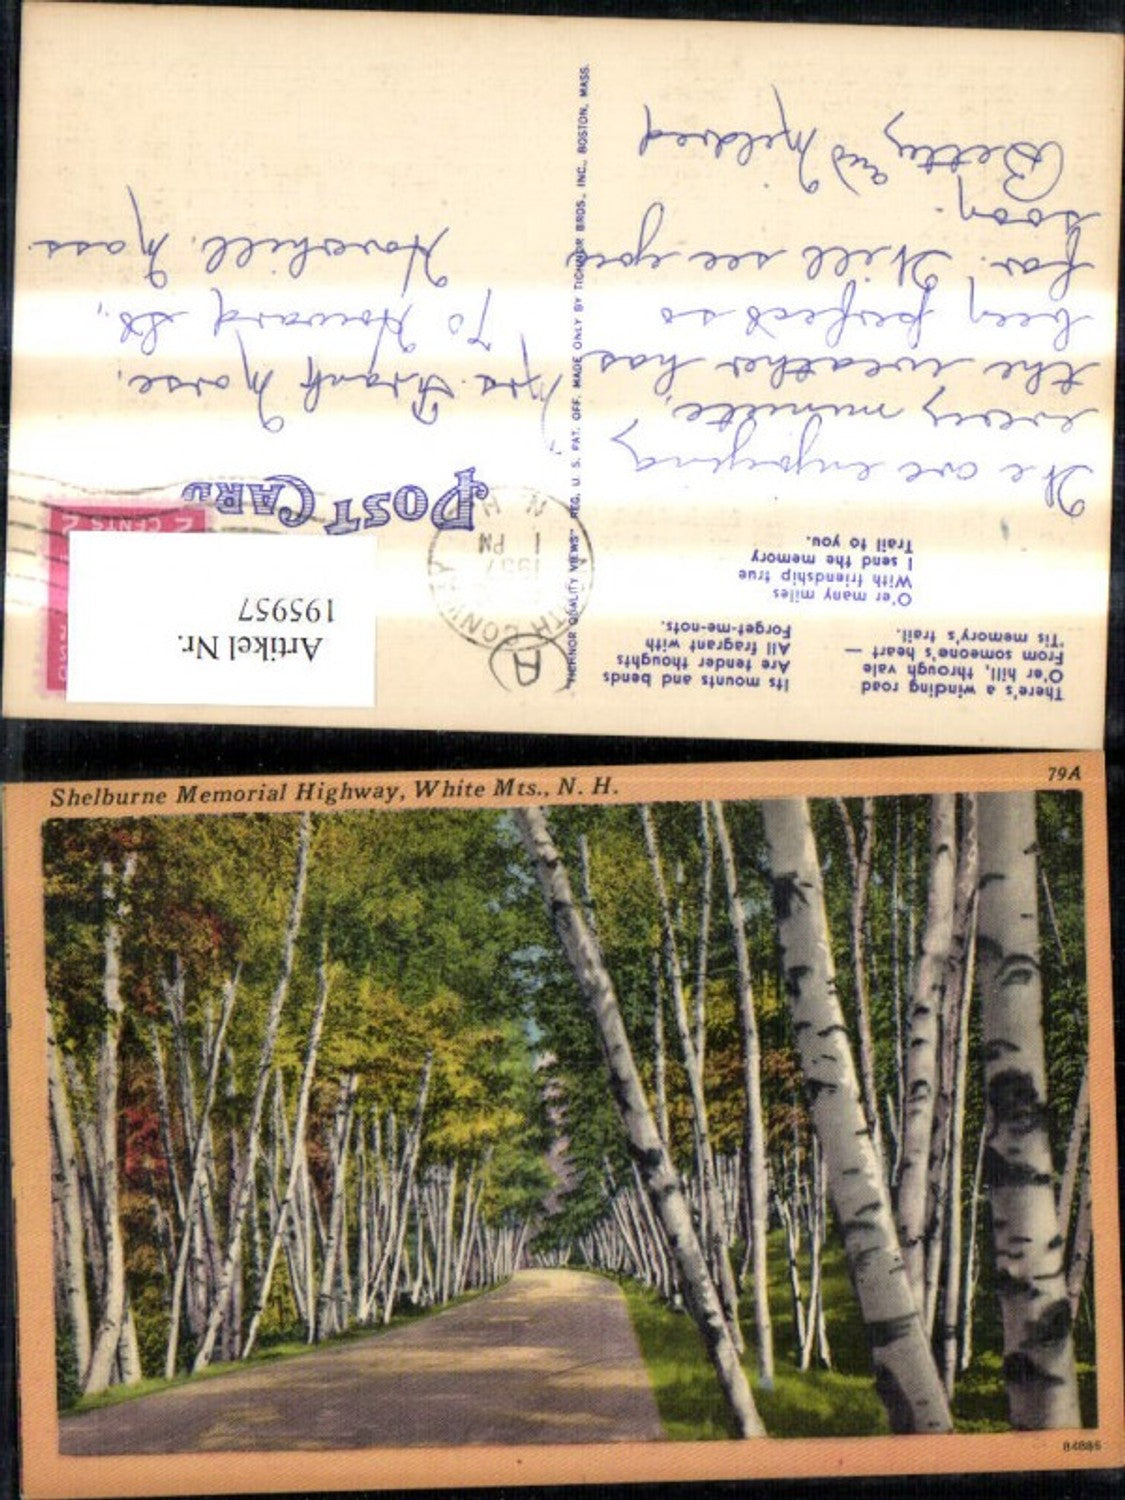 There's a winding road
O'er hill, through vale
From someone's heart —
'Tis memory's trail.
Its mounts and bends
Are tender thoughts
All fragrant with
Forget-me-nots.
O'er many miles
With friendship true
I send the memory
Trail to you.
We are enjoying
every minute,
the weather has
been perfect so
far. Will see you
soon.
Betty and Mildred
"TICHNOR QUALITY VIEWS" REG. U. S. PAT. OFF. MADE ONLY BY TICHNOR BROS., INC., BOSTON, MASS.
A
TH CONWAY
1957
1 PM
N. H.
POST CARD
2 CENTS 2
Artikel Nr.
195957
Mrs. Frank Morse,
70 Howard St.,
Haverhill, Mass.
Shelburne Memorial Highway, White Mts., N. H.
79A
84886